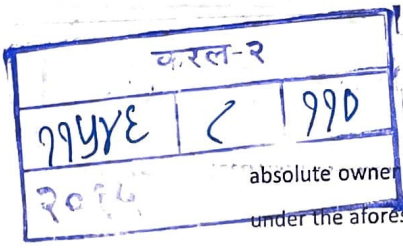 करल-२
११५४६ ८ ११०
absolute owner
under the afores